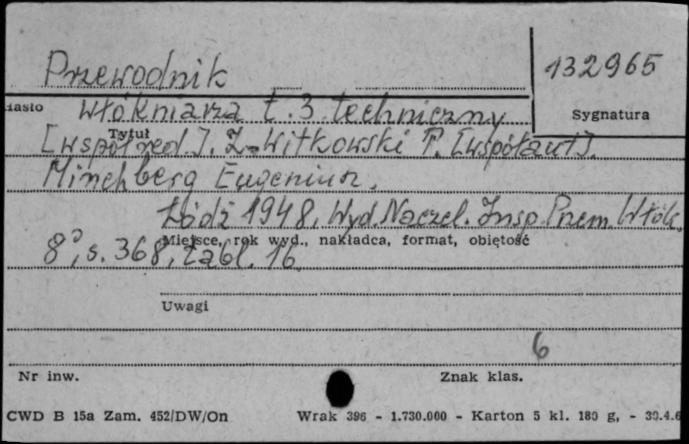 Przewodnik
132965
iasło
włókniarza t. 3 techniczny
Sygnatura
Tytuł
[współred]. Z. Witkowski P. [współaut].
Minchberg Eugeniusz.
Łódź 1948, Wyd. Naczel. Insp. Przem. Włók.
Miejsce, rok wyd., nakładca, format, objętość
8°, s. 368, tabl. 16
Uwagi
6
Nr inw.
Znak klas.
CWD B 15a Zam. 452/DW/On
Wrak 396 - 1.730.000 - Karton 5 kl. 180 g, - 30.4.6